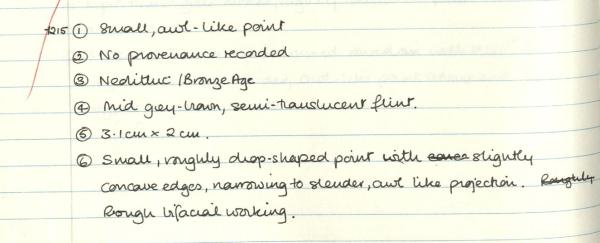 *215 ① Small, awl-like point
② No provenance recorded
③ Neolithic / Bronze Age
④ Mid grey-brown, semi-translucent flint.
⑤ 3.1cm x 2cm.
⑥ Small, roughly drop-shaped point with slightly
concave edges, narrowing to slender, awl like projection. Roughly
Rough bifacial working.